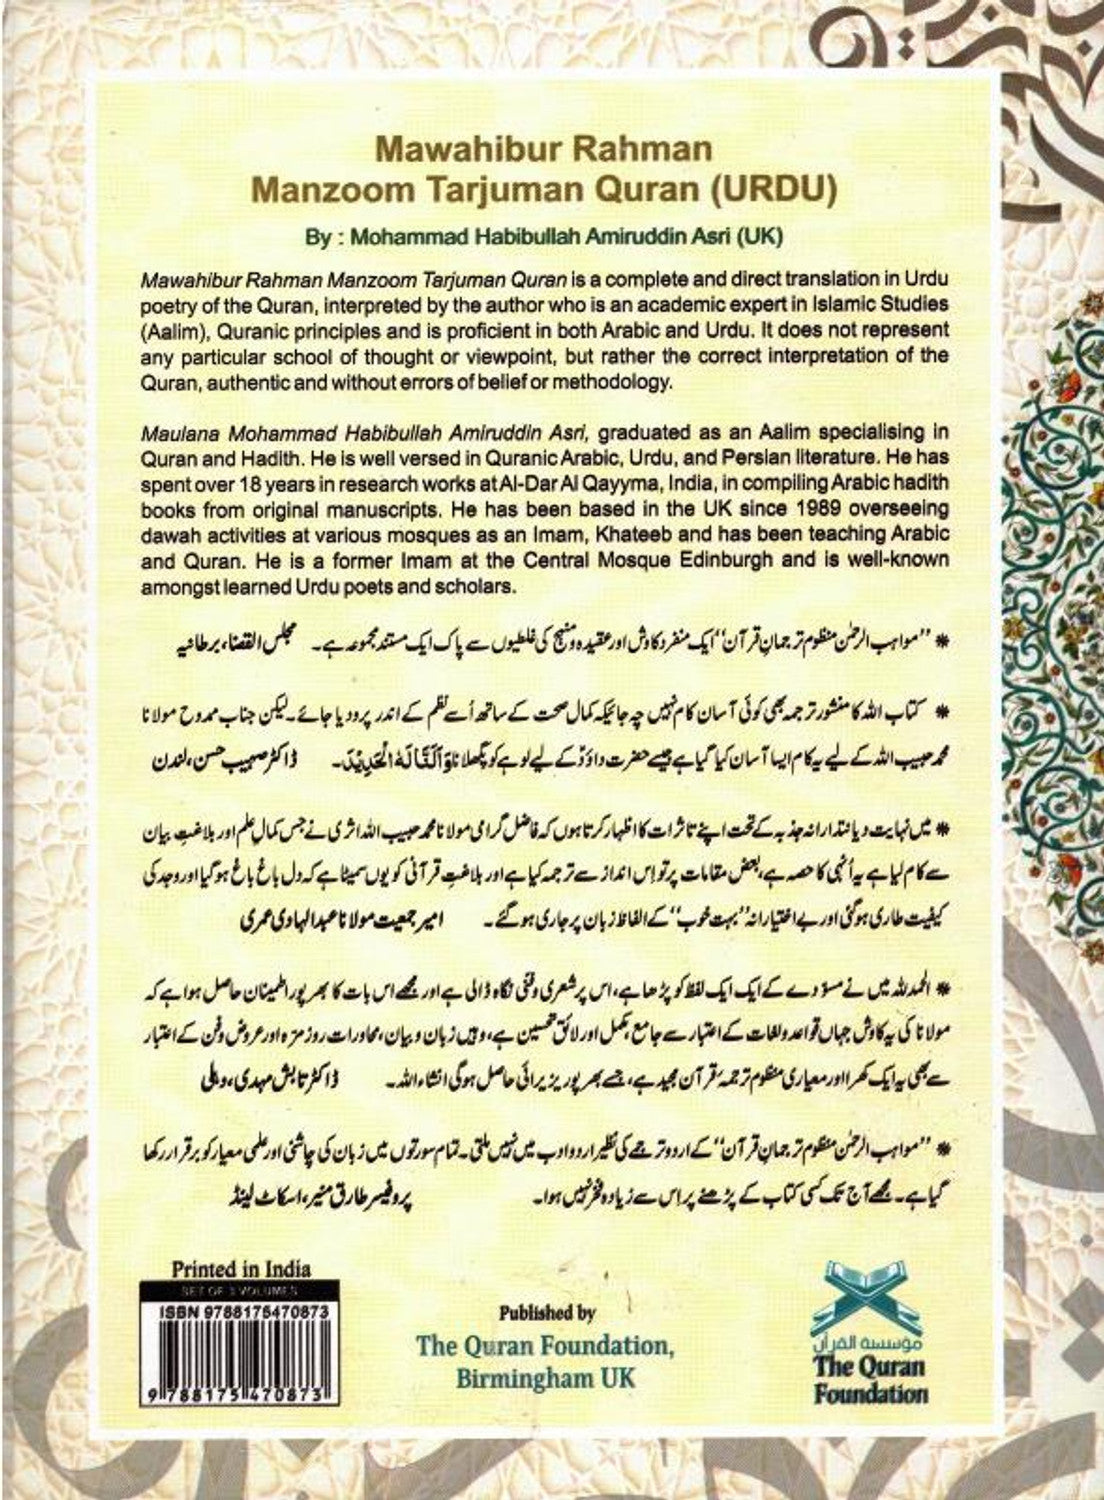 Mawahibur Rahman
Manzoom Tarjuman Quran (URDU)
By : Mohammad Habibullah Amiruddin Asri (UK)
Mawahibur Rahman Manzoom Tarjuman Quran is a complete and direct translation in Urdu
poetry of the Quran, interpreted by the author who is an academic expert in Islamic Studies
(Aalim), Quranic principles and is proficient in both Arabic and Urdu. It does not represent
any particular school of thought or viewpoint, but rather the correct interpretation of the
Quran, authentic and without errors of belief or methodology.
Maulana Mohammad Habibullah Amiruddin Asri, graduated as an Aalim specialising in
Quran and Hadith. He is well versed in Quranic Arabic, Urdu, and Persian literature. He has
spent over 18 years in research works at Al-Dar Al Qayyma, India, in compiling Arabic hadith
books from original manuscripts. He has been based in the UK since 1989 overseeing
dawah activities at various mosques as an Imam, Khateeb and has been teaching Arabic
and Quran. He is a former Imam at the Central Mosque Edinburgh and is well-known
amongst learned Urdu poets and scholars.
* ”مواہب الرحمٰن منظوم ترجمانِ قرآن“ ایک منفرد کاوش اور عقیدہ و منہج کی غلطیوں سے پاک ایک مستند مجموعہ ہے۔ مجلس القضاء، برطانیہ
* کتاب اللہ کا منثور ترجمہ بھی کوئی آسان کام نہیں چہ جائیکہ کمال صحت کے ساتھ اُسے نظم کے اندر پرو دیا جائے۔ لیکن جناب ممدوح مولانا
محمد حبیب اللہ کے لیے یہ کام ایسا آسان کیا گیا ہے جیسے حضرت داؤدؑ کے لیے لوہے کو پگھلانا وَأَلَنَّا لَهُ الْحَدِيْدَ۔ ڈاکٹر صہیب حسن، لندن
* میں نہایت دیانتدارانہ جذبہ کے تحت اپنے تاثرات کا اظہار کرتا ہوں کہ فاضل گرامی مولانا محمد حبیب اللہ اثری نے جس کمالِ علم اور بلاغتِ بیان
سے کام لیا ہے یہ اُنہی کا حصہ ہے، بعض مقامات پر تو اِس انداز سے ترجمہ کیا ہے اور بلاغتِ قرآنی کو یوں سمیٹا ہے کہ دل باغ باغ ہو گیا اور وجد کی
کیفیت طاری ہو گئی اور بے اختیارانہ ”بہت خوب“ کے الفاظ زبان پر جاری ہو گئے۔ امیر جمعیت مولانا عبدالہادی عمری
* الحمدللہ میں نے مسوّدے کے ایک ایک لفظ کو پڑھا ہے، اس پر شعری وفنّی نگاہ ڈالی ہے اور مجھے اس بات کا بھرپور اطمینان حاصل ہوا ہے کہ
مولانا کی یہ کاوش جہاں قواعد ولغات کے اعتبار سے جامع، مکمل اور لائق تحسین ہے، وہیں زبان و بیان، محاورات روزمرہ اور عروض وفن کے اعتبار
سے بھی یہ ایک کھرا اور معیاری منظوم ترجمۂ قرآن مجید ہے، جسے بھرپور پزیرائی حاصل ہوگی انشاءاللہ۔ ڈاکٹر تابش مہدی، دہلی
* ”مواہب الرحمٰن منظوم ترجمانِ قرآن“ کے اردو ترجمے کی نظیر اردو ادب میں نہیں ملتی۔ تمام سورتوں میں زبان کی چاشنی اور علمی معیار کو برقرار رکھا
گیا ہے۔ مجھے آج تک کسی کتاب کے پڑھنے پر اِس سے زیادہ فخر نہیں ہوا۔ پروفیسر طارق منیر، اسکاٹ لینڈ
Printed in India
SET OF 3 VOLUMES
ISBN 9788175470873
9 788175 470873
Published by
The Quran Foundation,
Birmingham UK
مؤسسة القرآن
The Quran
Foundation